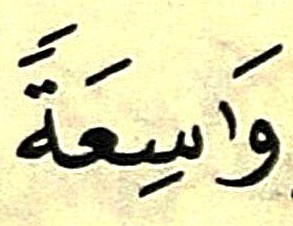 وَاسِعَةً